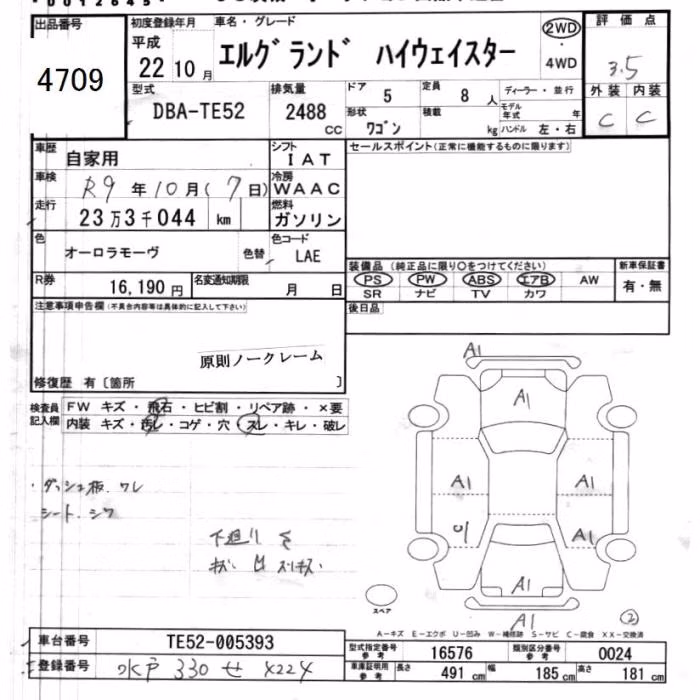 出品番号
4709
初度登録年月
車名・グレード
平成 22 10月
エルグランド ハイウェイスター
2WD
・
4WD
評価点
3.5
外装 内装
C C
型式
DBA-TE52
排気量
2488 CC
ドア 5
定員 8人
形状 ワゴン
積載 kg
ディーラー・並行
モデル年式 年
ハンドル 左・右
車歴 自家用
シフト IAT
セールスポイント(正常に機能するものに限ります)
車検 R9年10月(7日)
冷房 WAAC
走行 23万3千044 km
燃料 ガソリン
色 オーロラモーヴ 色替
色コード LAE
装備品 (純正品に限り○をつけてください)
PS PW ABS エアB AW
SR ナビ TV カワ
新車保証書
有・無
R券 16,190円
名変通知期限 月 日
後日品
注意事項申告欄(不具合内容等は具体的に記入して下さい)
原則ノークレーム
修復歴 有〔箇所 〕
検査員記入欄
FW キズ・飛石・ヒビ割・リペア跡・×要
内装 キズ・汚レ・コゲ・穴・スレ・キレ・破レ
・ダッシュ板.ワレ
シート.シワ
下廻り
A1
A1
A1
A1
A1
A1
A1
A1
スペア
②
A-キズ E-エクボ U-凹み W-補修跡 S-サビ C-腐食 XX-交換済
車台番号 TE52-005393
登録番号 水戸 330 せ 4224
型式指定番号 参考 16576
類別区分番号 参考 0024
車庫証明用 参考 長さ 491cm 幅 185cm 高さ 181cm